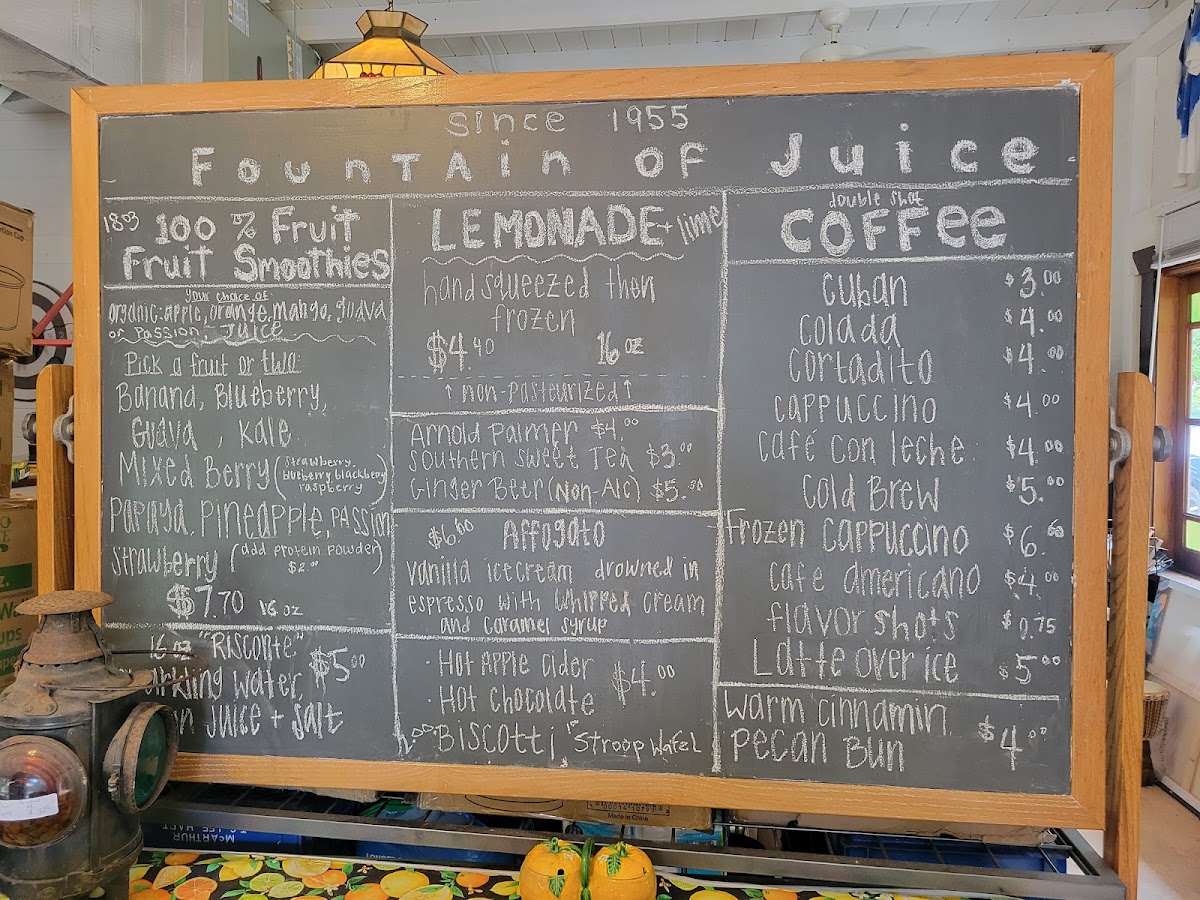 Since 1955
Fountain of Juice
1803
100 % Fruit
Fruit Smoothies
your choice of:
organic: apple, orange, mango, guava
or passion juice
Pick a fruit or two:
Banana, Blueberry,
Guava, Kale
Mixed Berry (strawberry, blueberry, blackberry raspberry)
Papaya, Pineapple, Passion
Strawberry (add protein powder) $2.00
$7.70 16 oz
16 oz "Risconte" $5.00
Water,
Juice + Salt
LEMONADE + lime
hand squeezed then
frozen
$4.40 16 oz
↑ non-pasteurized ↑
Arnold Palmer $4.00
Southern Sweet Tea $3.00
Ginger Beer (Non-Alc) $5.50
$6.60 Affogato
vanilla icecream drowned in
espresso with whipped cream
and caramel syrup
· Hot Apple Cider
$4.00
· Hot chocolate
Biscotti Stroop Wafel
double shot
COFFee
cuban $3.00
colada $4.00
cortadito $4.00
cappuccino $4.00
café con leche $4.00
cold Brew $5.00
Frozen cappuccino $6.60
cafe americano $4.00
flavor shots $0.75
Latte over ice $5.00
warm cinnamin
pecan Bun $4.00
McARTHUR
Made in China